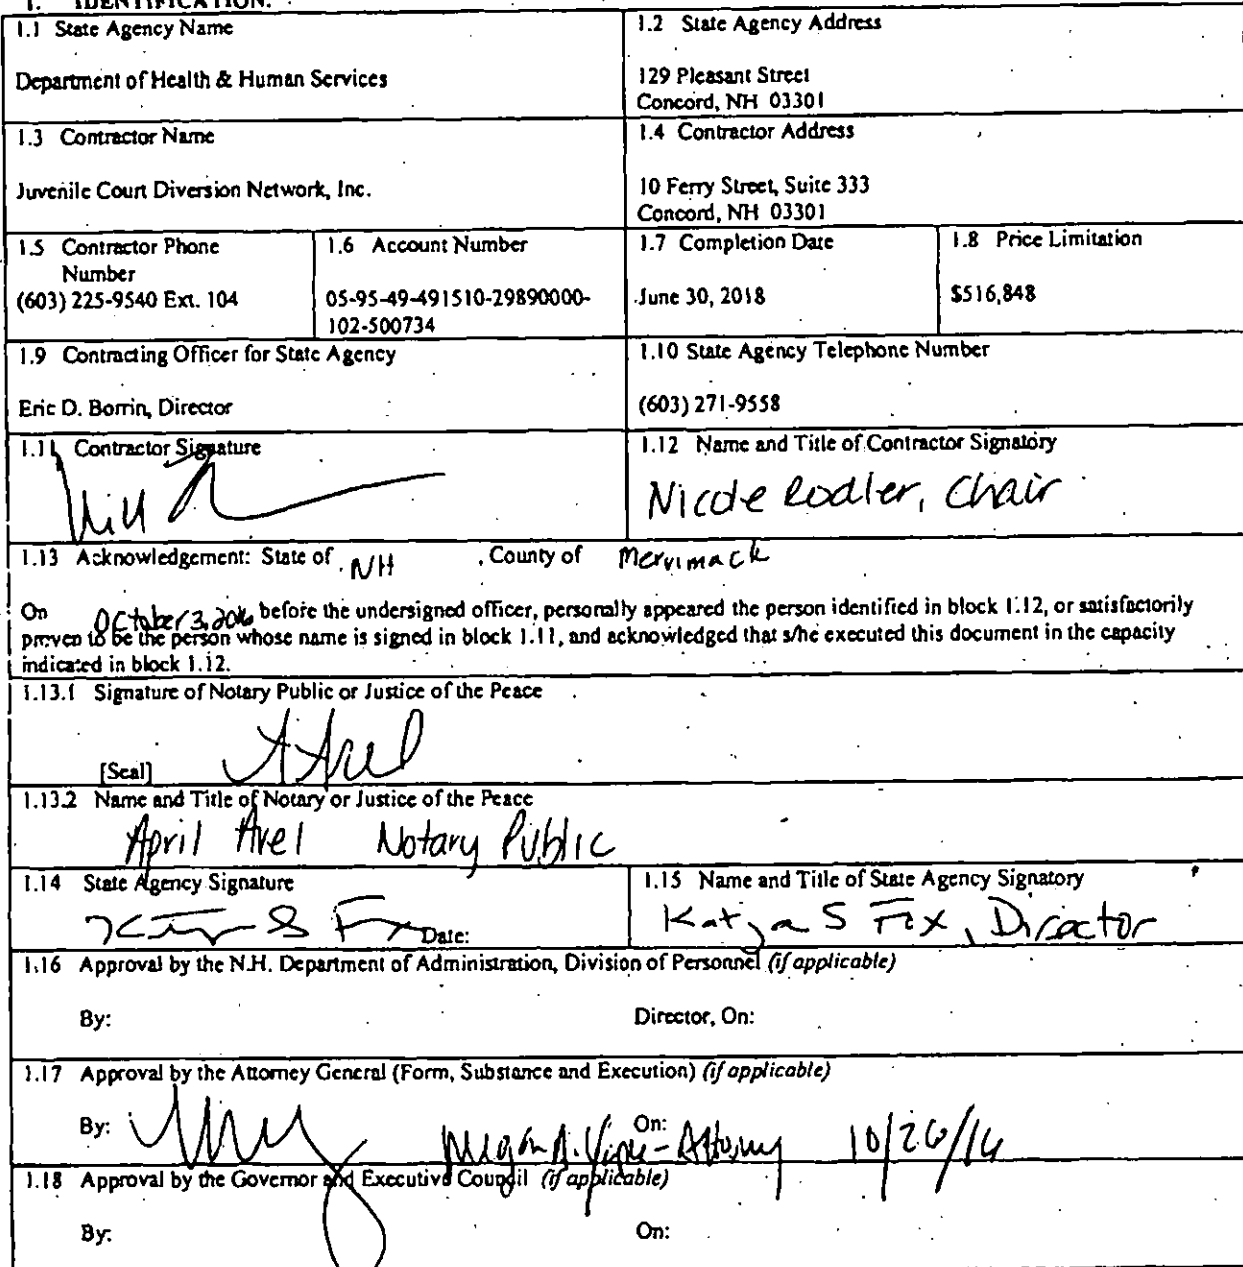 1. IDENTIFICATION.
1.1 State Agency Name
Department of Health & Human Services
1.2 State Agency Address
129 Pleasant Street
Concord, NH 03301
1.3 Contractor Name
Juvenile Court Diversion Network, Inc.
1.4 Contractor Address
10 Ferry Street, Suite 333
Concord, NH 03301
1.5 Contractor Phone
Number
(603) 225-9540 Ext. 104
1.6 Account Number
05-95-49-491510-29890000-
102-500734
1.7 Completion Date
June 30, 2018
1.8 Price Limitation
$516,848
1.9 Contracting Officer for State Agency
Eric D. Borrin, Director
1.10 State Agency Telephone Number
(603) 271-9558
1.11 Contractor Signature
1.12 Name and Title of Contractor Signatory
Nicole Rodler, Chair
1.13 Acknowledgement: State of NH , County of Merrimack
On October 3, 2016 before the undersigned officer, personally appeared the person identified in block 1.12, or satisfactorily
proven to be the person whose name is signed in block 1.11, and acknowledged that s/he executed this document in the capacity
indicated in block 1.12.
1.13.1 Signature of Notary Public or Justice of the Peace
[Seal]
1.13.2 Name and Title of Notary or Justice of the Peace
April Notary Public
1.14 State Agency Signature
Date:
1.15 Name and Title of State Agency Signatory
Katja S Fox, Director
1.16 Approval by the N.H. Department of Administration, Division of Personnel (if applicable)
By: Director, On:
1.17 Approval by the Attorney General (Form, Substance and Execution) (if applicable)
By: On:
Megan A. - Attorney 10/26/16
1.18 Approval by the Governor and Executive Council (if applicable)
By: On: